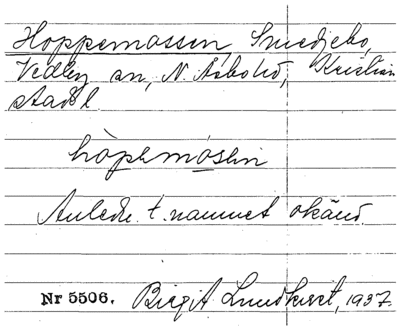 Hoppemossen, Smedjebo,
Vedby sn, N. Åsbo hd, Kristian
stads l.
håpemosen
Anledn. t. namnet okänd.
Nr 5506. Birgit Lundkvist, 1937.